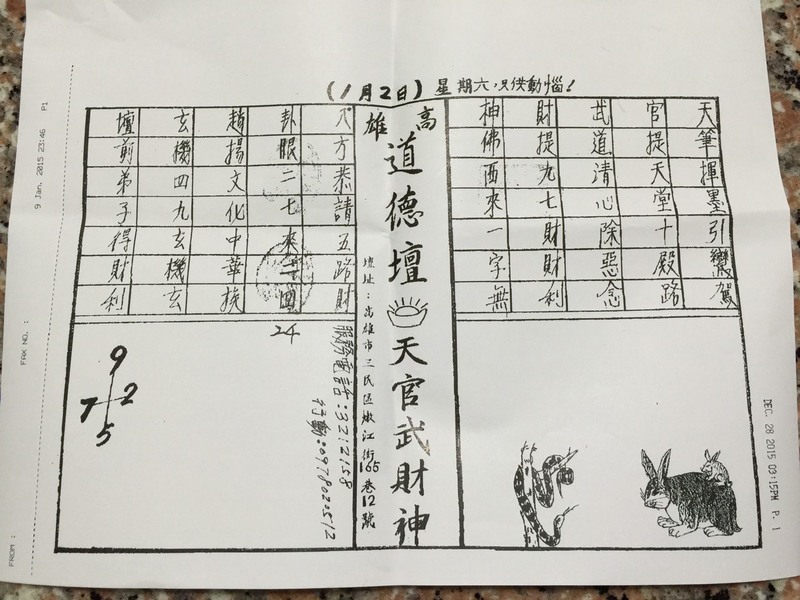 (1月2日)星期六,只供動惱!
天筆揮墨引鸞駕
官提天堂十殿路
武道清心除惡念
財提九七財財利
神佛西來一字無
高雄
道德壇
天官武財神
壇址:高雄市三民區嫩江街165巷12號
服務電話:3212158
行動:0978020512
八方恭請五路財
卦眼二七來二
趙揚文化中華挨
玄機四九玄機玄
壇前弟子得財利
24
9
7 2
5
9 Jan. 2015 23:46 P1
FAX NO. :
FROM :
DEC. 28 2015 03:15PM P. 1